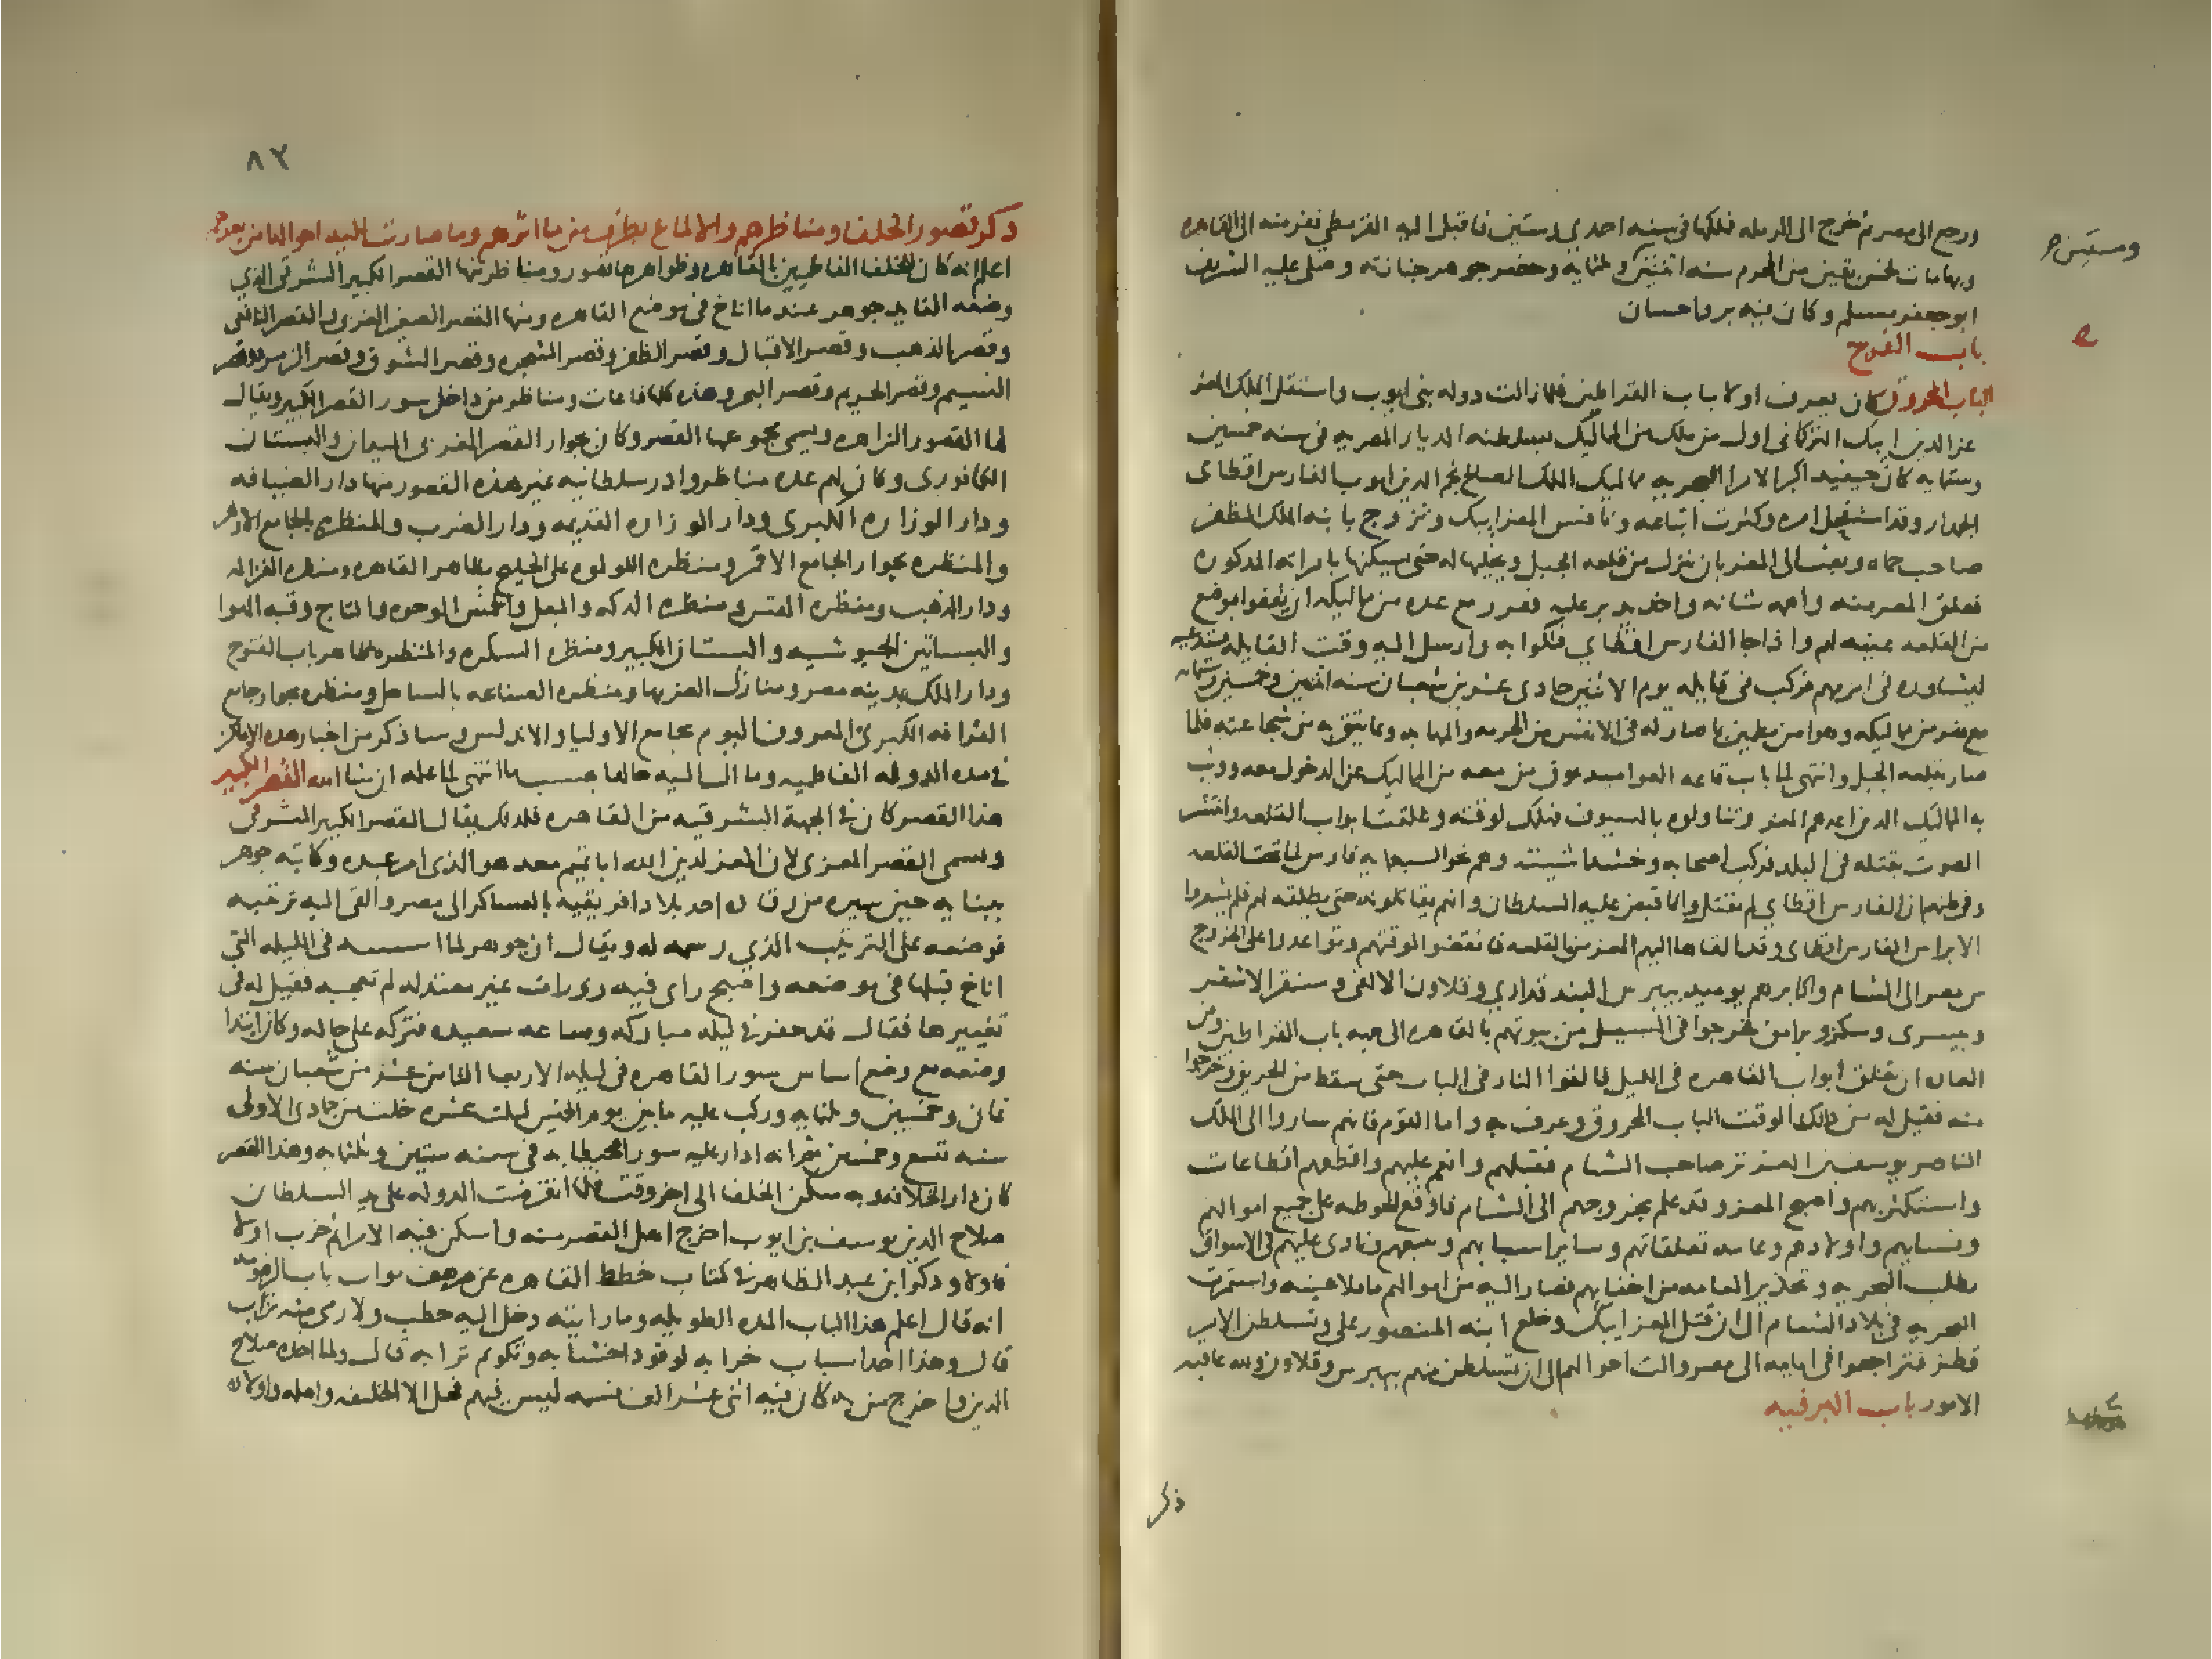 ورجع الى مصر ثم خرج الى الرمله فملكها فى سنه احدى وستين فاقبل اليه القرمطي ففر منه الى القاهره
وبها مات لخمس بقين من المحرم سنه اثنتين وثلثمايه وحضر جوهر جنازته وصلى عليه الشريف
وستين
ابو جعفر مسلم وكان فيه بر واحسان
باب الفرج
الباب المحروق كان يعرف اولا بباب القراطين فلما زالت دوله بنى ايوب واستقل الملك المعز
عز الدين ايبك التركمانى اول من ملك من المماليك بسلطنه الديار المصريه فى سنه خمسين
وستمايه كان حينيد اكبر الامرا البحريه مماليك الملك الصالح نجم الدين ايوب الفارس اقطاى
الجمدار وقد استفحل امره وكثرت اتباعه ونافس المعز ايبك وتزوج بابنه الملك المظفر
صاحب حماه وبعث الى المعز بان ينزل من قلعه الجبل ويخليها له حتى يسكنها بامراته المدكوره
فقلق المعز منه واهمه شانه واخد يدبر عليه فقرر مع عده من مماليكه ان يقفوا بموضع
من القلعه عينه لهم واذا جا الفارس اقطاي فتكوا به وارسل اليه وقت القايله يستدعيه
ليشاوره فى امر مهم فركب فى قايله يوم الاثنين حادى عشرين شعبان سنه اثنين وخمسين وستمايه
مع نفر من مماليكه وهو امن مطمين بما صار له فى الانفس من الحرمه والمهابه وبما يثق به من شجاعته فلما
صار بقلعه الجبل وانتهى الى باب قاعه العواميد عوق من معه من المماليك عن الدخول معه ووثب
به المماليك الدين اعدهم المعز وتناولوه بالسيوف فهلك لوقته وغلقت ابواب القلعه وانتشر
الصوت بقتله فى البلد فركب اصحابه وخشداشيته وهم نحو السبعمايه فارس الى تحت القلعه
وفى ظنهم ان الفارس اقطاي لم يقتل وانما قبض عليه السلطان وانهم يقاتلونه حتى يطلقه لهم فلم يشعروا
الا براس الفارس اقطاى وقد القاها اليهم المعز من القلعه فانفضوا لوقتهم وتواعدوا على الخروج
من مصر الى الشام واكابرهم يوميد بيبرس البندقدارى وقلاون الالفى وسنقر الاشقر
وبيسرى وسكز وبرامق فخرجوا فى الليل من بيوتهم بالقاهره الى جهه باب القراطين ومن
العاده ان تغلق ابواب القاهره فى الليل فالقوا النار فى الباب حتى سقط من الحريق وخرجوا
منه فقيل له من ذلك الوقت الباب المحروق وعرف به واما القوم فانهم ساروا الى الملك
الناصر يوسف بن العزيز صاحب الشام فقبلهم وانعم عليهم واقطعهم اقطاعات
واستكثر بهم واصبح المعز وقد علم بخروجهم الى الشام فاوقع الحوطه على جميع اموالهم
ونسايهم واولادهم وعامه تعلقاتهم وساير اسبابهم وتتبعهم ونادى عليهم فى الاسواق
بطلب البحريه وتحذير العامه من اخفايهم فصار اليه من اموالهم ما ملا عينه واستمرت
البحريه فى بلاد الشام الى ان قتل المعز ايبك وخلع ابنه المنصور على وتسلطن الامير
قطز فتراجعوا فى ايامه الى مصر والت احوالهم الى ان تسلطن منهم بيبرس وقلاون ولله عاقبه
الامور باب البرقيه
ذكر
٨٢
ذكر قصور الخلفا ومناظرهم والالماع بطرف من ماثرهم وما صارت اليه احوالها من بعدهم
اعلم انه كان للخلفا الفاطميين بالقاهره وظواهرها قصور ومناظر منها القصر الكبير الشرقى الذي
وضعه القايد جوهر عندما اناخ فى موضع القاهره ومنها القصر الصغير الغربى والقصر النافعى
وقصر الذهب وقصر الاقبال وقصر الظفر وقصر الشجره وقصر الشوق وقصر الزمرد وقصر
النسيم وقصر الحريم وقصر البحر وهذه كلها قاعات ومناظر من داخل سور القصر الكبير ويقال
لها القصور الزاهره ويسمى مجموعها القصر وكان بجوار القصر الغربى الميدان والبستان
الكافورى وكان لهم عده مناظر وادر سلطانيه غير هذه القصور منها دار الضيافه
ودار الوزاره الكبرى ودار الوزاره القديمه ودار الضرب والمنظره بالجامع الازهر
والمنظره بجوار الجامع الاقمر ومنظره اللولوه على الخليج بظاهر القاهره ومنظره الغزاله
ودار الذهب ومنظره المقس ومنظره الدكه والبعل والخمس الوجوه والتاج وقبه الهوا
والبساتين الجيوشيه والبستان الكبير ومنظره السكره والمنظره ظاهر باب الفتوح
ودار الملك بمدينه مصر ومنازل العز بها ومنظره الصناعه بالساحل ومنظره بجوار جامع
القرافه الكبرى المعروف اليوم بجامع الاوليا والاندلس وساذكر من اخبار هذه الاماكن
فى مده الدوله الفاطميه وما ال اليه حالها بحسب ما انتهى الى علمه ان شا الله القصر الكبير
هذا القصر كان فى الجهه الشرقيه من القاهره فلذلك يقال القصر الكبير الشرقى
ويسمى القصر المعزى لان المعز لدين الله ابا تميم معد هو الذى امر عبده وكاتبه جوهر
ببنايه حين سيره من رقاده احد بلاد افريقيه بالعساكر الى مصر والقى اليه ترتيبه
فوضعه على الترتيب الذي رسمه له ويقال ان جوهر لما اسسه فى الليله التى
اناخ قبلها فى موضعه واصبح راى فيه زورات غير معتدله لم تعجبه فقيل له فى
تغييرها فقال قد حفر فى ليله مباركه وساعه سعيده فتركه على حاله وكان ابتدا
وضعه مع وضع اساس سور القاهره فى ليله الاربعا الثامن عشر من شعبان سنه
ثمان وخمسين وثلثمايه وركب عليه بابين يوم الخميس لثلث عشره خلت من جمادى الاولى
سنه تسع وخمسين ثم انه ادار عليه سورا محيطا به فى سنه ستين وثلثمايه وهذا القصر
كان دار الخلافه وبه سكن الخلفا الى اخر وقت فلما انقرضت الدوله على يد السلطان
صلاح الدين يوسف بن ايوب اخرج اهل القصر منه واسكن فيه الامرا ثم خرب اولا
فاولا وذكر ابن عبد الظاهر فى كتاب خطط القاهره عن مرهف بواب باب الزهومه
انه قال اعلم هذا الباب المده الطويله وما رايته دخل اليه حطب ولا رمى منه تراب
قال وهذا احد اسباب خرابه لوقود اخشابه وتكويم ترابه قال ولما اخذه صلاح
الدين واخرج من به كان فيه اثنى عشر الف نسمه ليس فيهم فحل الا الخليفه واهله واولاده